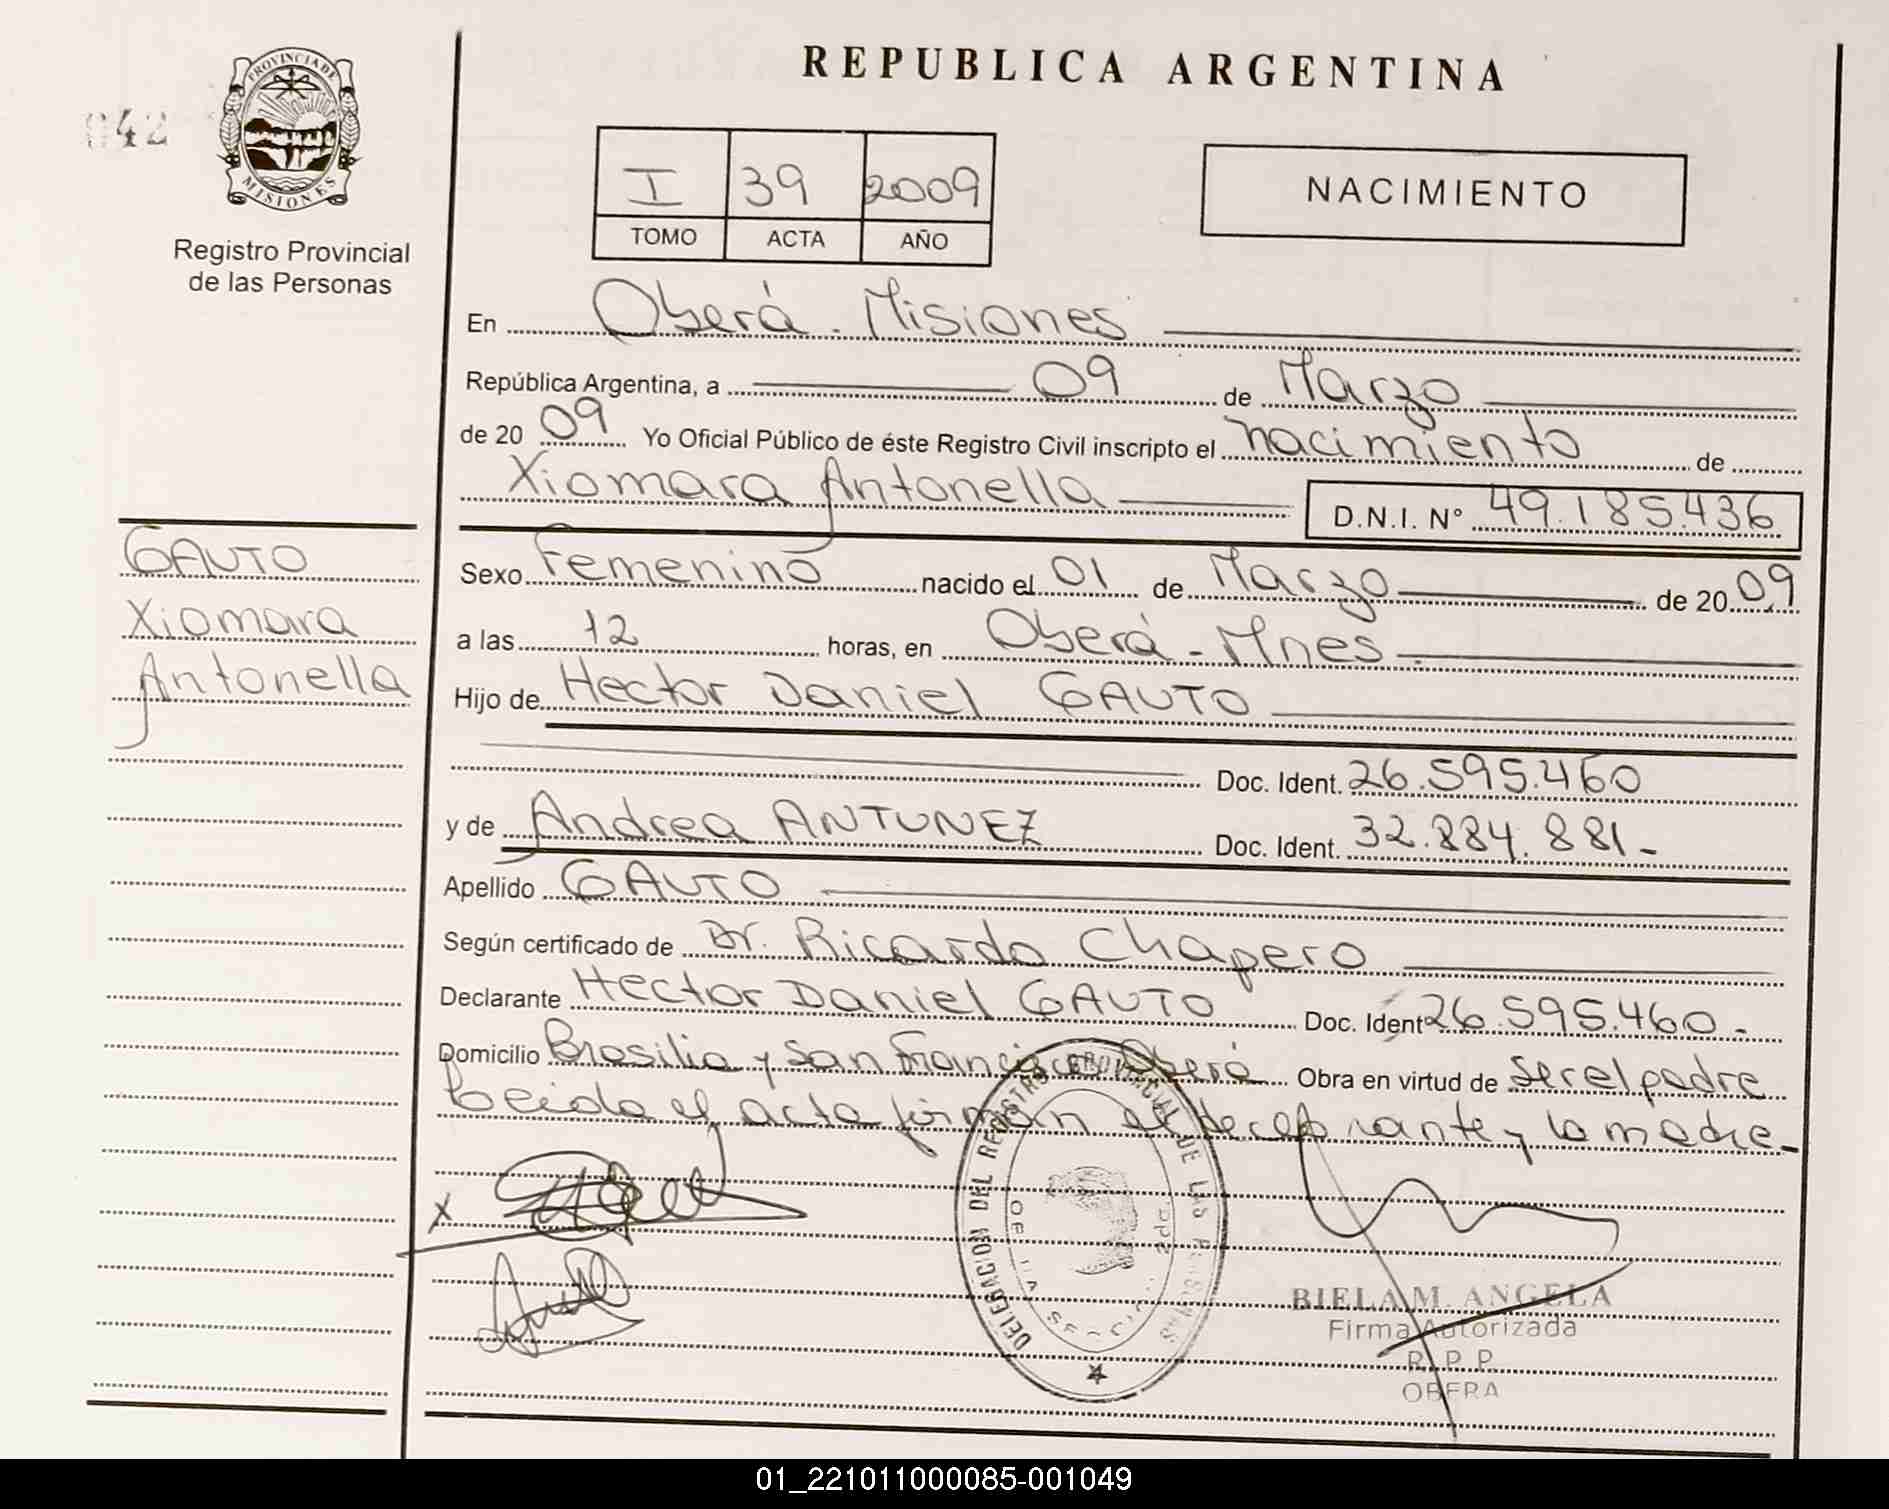 REPUBLICA ARGENTINA
042
PROVINCIA DE
MISIONES
Registro Provincial
de las Personas
I 39 2009
TOMO ACTA AÑO
NACIMIENTO
En Oberá - Misiones
República Argentina, a 09 de Marzo
de 20 09 Yo Oficial Público de éste Registro Civil inscripto el nacimiento de
Xiomara Antonella D.N.I. Nº 49.185.436
GAUTO
Xiomara
Antonella
Sexo Femenino nacido el 01 de Marzo de 20 09
a las 12 horas, en Oberá - Mnes.
Hijo de Hector Daniel GAUTO
Doc. Ident. 26.595.460
y de Andrea ANTUNEZ Doc. Ident. 32.884.881-
Apellido GAUTO
Según certificado de Dr. Ricardo Chapero
Declarante Hector Daniel GAUTO Doc. Ident 26.595.460.-
Domicilio Brasilia y San Francisco Oberá Obra en virtud de ser el padre
Leida el acta firman el declarante y la madre-
X
DELEGACION DEL REGISTRO PROVINCIAL DE LAS PERSONAS
BIELA M. ANGELA
Firma Autorizada
R. P. P.
OBERA
01_221011000085-001049